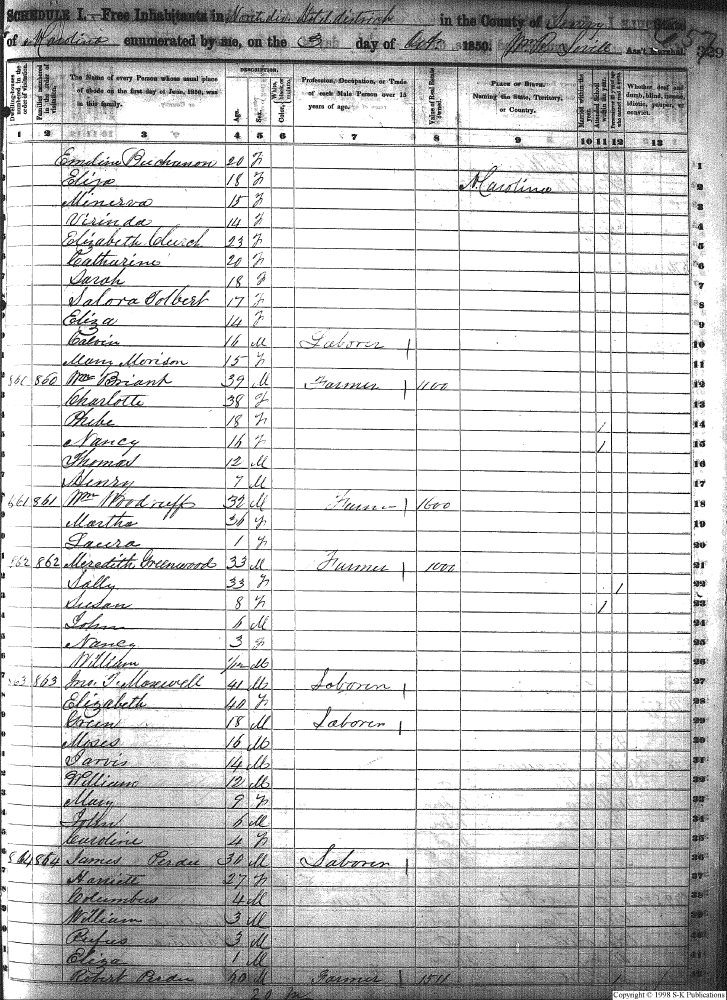 SCHEDULE I.—Free Inhabitants in in the County of State
of Carolina enumerated by me, on the day of 1850. Ass't Marshal.
Dwelling-houses numbered in the order of visitation.
Families numbered in the order of visitation.
The Name of every Person whose usual place of abode on the first day of June, 1850, was in this family.
DESCRIPTION.
Age.
Sex.
Color, White, black, or mulatto.
Profession, Occupation, or Trade of each Male Person over 15 years of age.
Value of Real Estate owned.
PLACE OF BIRTH.
Naming the State, Territory, or Country.
Married within the year.
Attended School within the year.
Whether deaf and dumb, blind, insane, idiotic, pauper, or convict.
1 2 3 4 5 6 7 8 9 10 11 12 13
Emeline Buchanon 20 F 1
Eliza 18 F N. Carolina 2
Minerva 15 F 3
Virinda 14 F 4
Elizabeth 23 F 5
Catharine 20 F 6
Sarah 18 F 7
Tolbert 17 F 8
Eliza 14 F 9
Calvin 16 M Laborer 10
Mary Morison 15 F 11
860 Wm Briant 39 M Farmer 1100 12
Charlotte 38 F 13
Phebe 18 F / 14
Nancy 16 F / 15
Thomas 12 M 16
Henry 7 M 17
861 861 Wm Woodruff 32 M Farmer 1600 18
Martha 36 F
Laura 1 F 20
862 862 Meredith Greenwood 33 M Farmer 1000 21
Sally 33 F / 22
Susan 8 F / 23
John 6 M 24
Nancy 3 F 25
William M 26
863 863 Jno. T. Maxwell 41 M Laborer 27
Elizabeth 40 F 28
Green 18 M Laborer 29
Moses 16 M
Jarvis 14 M
William 12 M
Mary 9 F
John 6 M
Caroline 4 F
864 864 James Perdue 30 M Laborer
Harriett 27 F
Columbus 4 M
William 3 M
Rufus 3 M
Eliza 1 M
Robert Perdue M Farmer
Copyright © 1998 S-K Publications